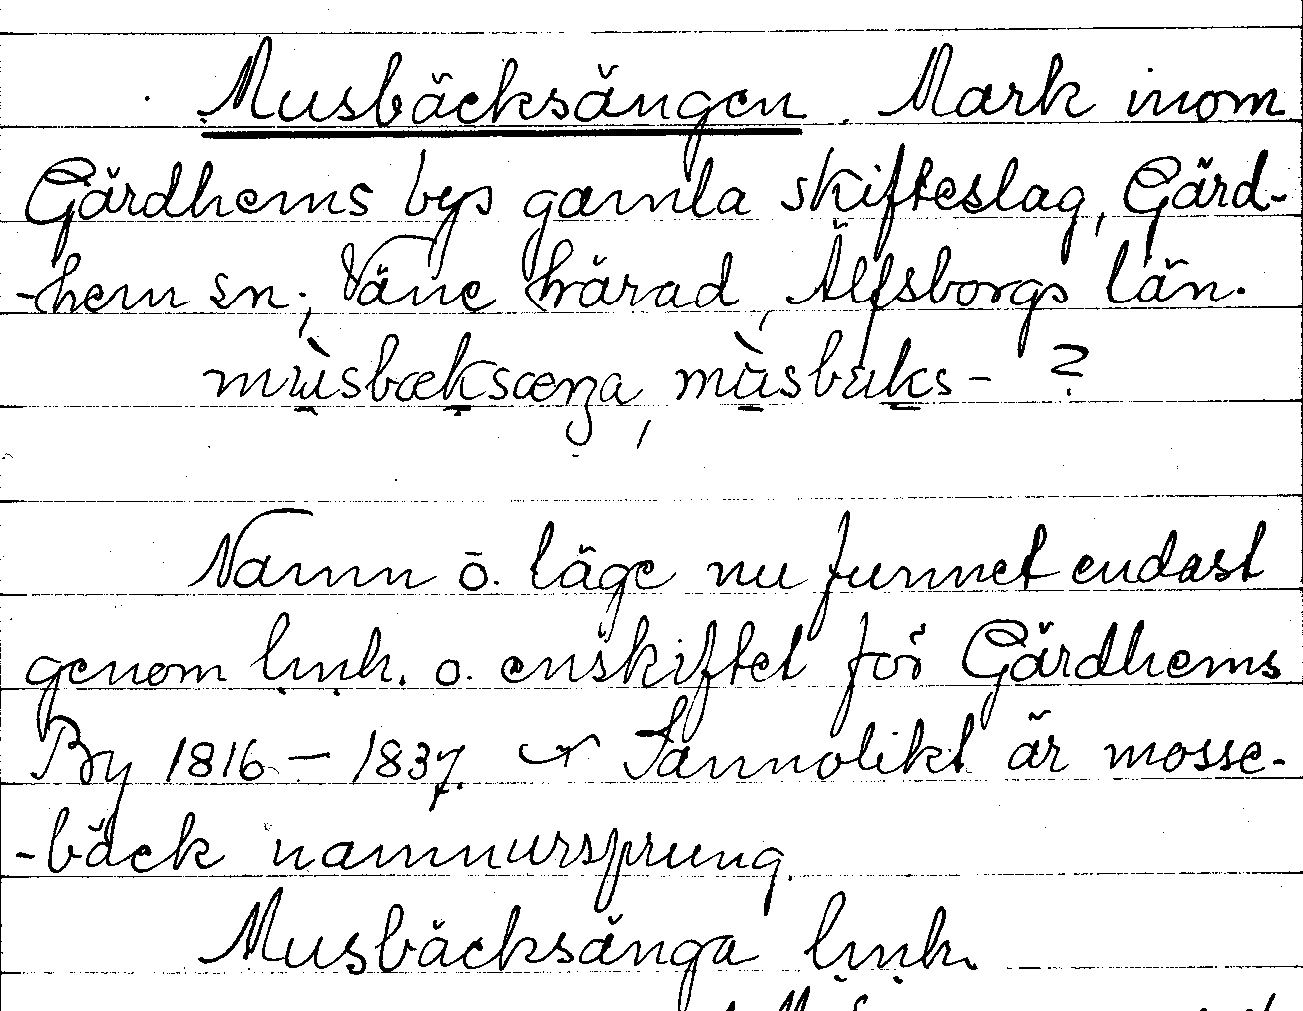 Musbäcksängen. Mark inom
Gärdhems bys gamla skifteslag, Gärd-
-hem sn., Väne härad, Älfsborgs län.
mùsbæksæŋa, mùsbäks- ?
Namn o. läge nu funnet endast
genom lmh. o. enskiftet för Gärdhems
By 1816 - 1837. Sannolikt är mosse-
-bäck namnursprung.
Musbäcksänga lmh.